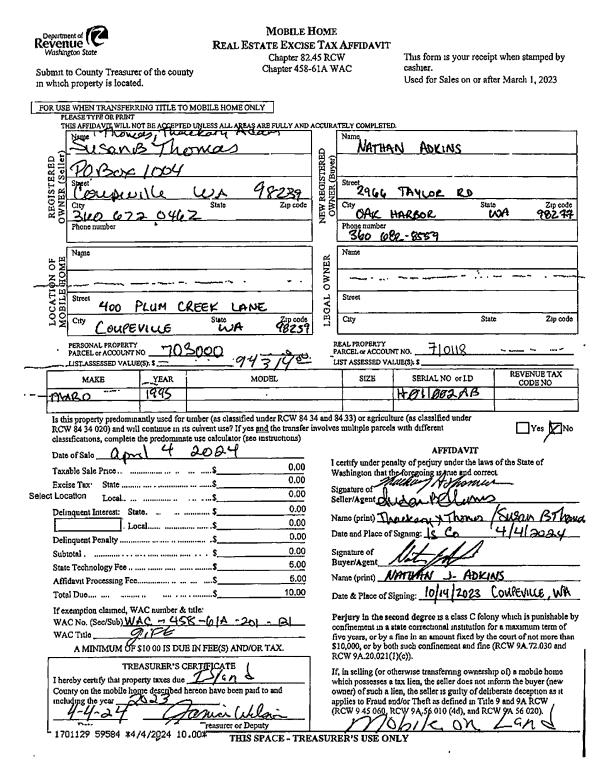 Department of
Revenue
Washington State
Submit to County Treasurer of the county
in which property is located.
MOBILE HOME
REAL ESTATE EXCISE TAX AFFIDAVIT
Chapter 82.45 RCW
Chapter 458-61A WAC
This form is your receipt when stamped by
cashier.
Used for Sales on or after March 1, 2023
FOR USE WHEN TRANSFERRING TITLE TO MOBILE HOME ONLY
PLEASE TYPE OR PRINT
THIS AFFIDAVIT WILL NOT BE ACCEPTED UNLESS ALL AREAS ARE FULLY AND ACCURATELY COMPLETED.
REGISTERED OWNER (Seller)
Name Thomas, Thackary Adam
Susan B Thomas
PO Box 1004
Street
Coupeville WA 98239
City State Zip code
360 672 0462
Phone number
NEW REGISTERED OWNER (Buyer)
Name
NATHAN ADKINS
Street
2966 TAYLOR RD
City State Zip code
OAK HARBOR WA 98277
Phone number
360 682-8559
LOCATION OF MOBILE HOME
Name
Street
400 PLUM CREEK LANE
City State Zip code
COUPEVILLE WA 98239
LEGAL OWNER
Name
Street
City State Zip code
PERSONAL PROPERTY
PARCEL or ACCOUNT NO. 703000
LIST ASSESSED VALUE(S): $ 94314.00
REAL PROPERTY
PARCEL or ACCOUNT NO. 710118
LIST ASSESSED VALUE(S): $
MAKE YEAR MODEL SIZE SERIAL NO or I.D REVENUE TAX CODE NO
1995
Is this property predominantly used for timber (as classified under RCW 84 34 and 84.33) or agriculture (as classified under
RCW 84 34 020) and will continue in its current use? If yes and the transfer involves multiple parcels with different
classifications, complete the predominate use calculator (see instructions)
Yes No
Date of Sale April 4 2024
Taxable Sale Price $ 0.00
Excise Tax: State $ 0.00
Select Location Local $ 0.00
Delinquent Interest: State $ 0.00
Local $ 0.00
Delinquent Penalty $ 0.00
Subtotal $ 0.00
State Technology Fee $ 5.00
Affidavit Processing Fee $ 5.00
Total Due $ 10.00
If exemption claimed, WAC number & title:
WAC No. (Sec/Sub) WAC - 458-61A-201-B1
WAC Title GIFT
A MINIMUM OF $10 00 IS DUE IN FEE(S) AND/OR TAX.
AFFIDAVIT
I certify under penalty of perjury under the laws of the State of
Washington that the foregoing is true and correct.
Signature of
Seller/Agent
Name (print) Thackary Thomas / Susan B Thomas
Date and Place of Signing: Is Co 4/4/2024
Signature of
Buyer/Agent
Name (print) NATHAN J. ADKINS
Date & Place of Signing: 10/14/2023 COUPEVILLE, WA
Perjury in the second degree is a class C felony which is punishable by
confinement in a state correctional institution for a maximum term of
five years, or by a fine in an amount fixed by the court of not more than
$10,000, or by both such confinement and fine (RCW 9A.72.030 and
RCW 9A.20.021(1)(c)).
If, in selling (or otherwise transferring ownership of) a mobile home
which possesses a tax lien, the seller does not inform the buyer (new
owner) of such a lien, the seller is guilty of deliberate deception as it
applies to Fraud and/or Theft as defined in Title 9 and 9A RCW
(RCW 9 45 060, RCW 9A.56 010 (4d), and RCW 9A 56 020).
Mobile on Land
TREASURER'S CERTIFICATE
I hereby certify that property taxes due Island
County on the mobile home described hereon have been paid to and
including the year 2023
4-4-24
Treasurer or Deputy
1701129 59584 *4/4/2024 10.00*
THIS SPACE - TREASURER'S USE ONLY